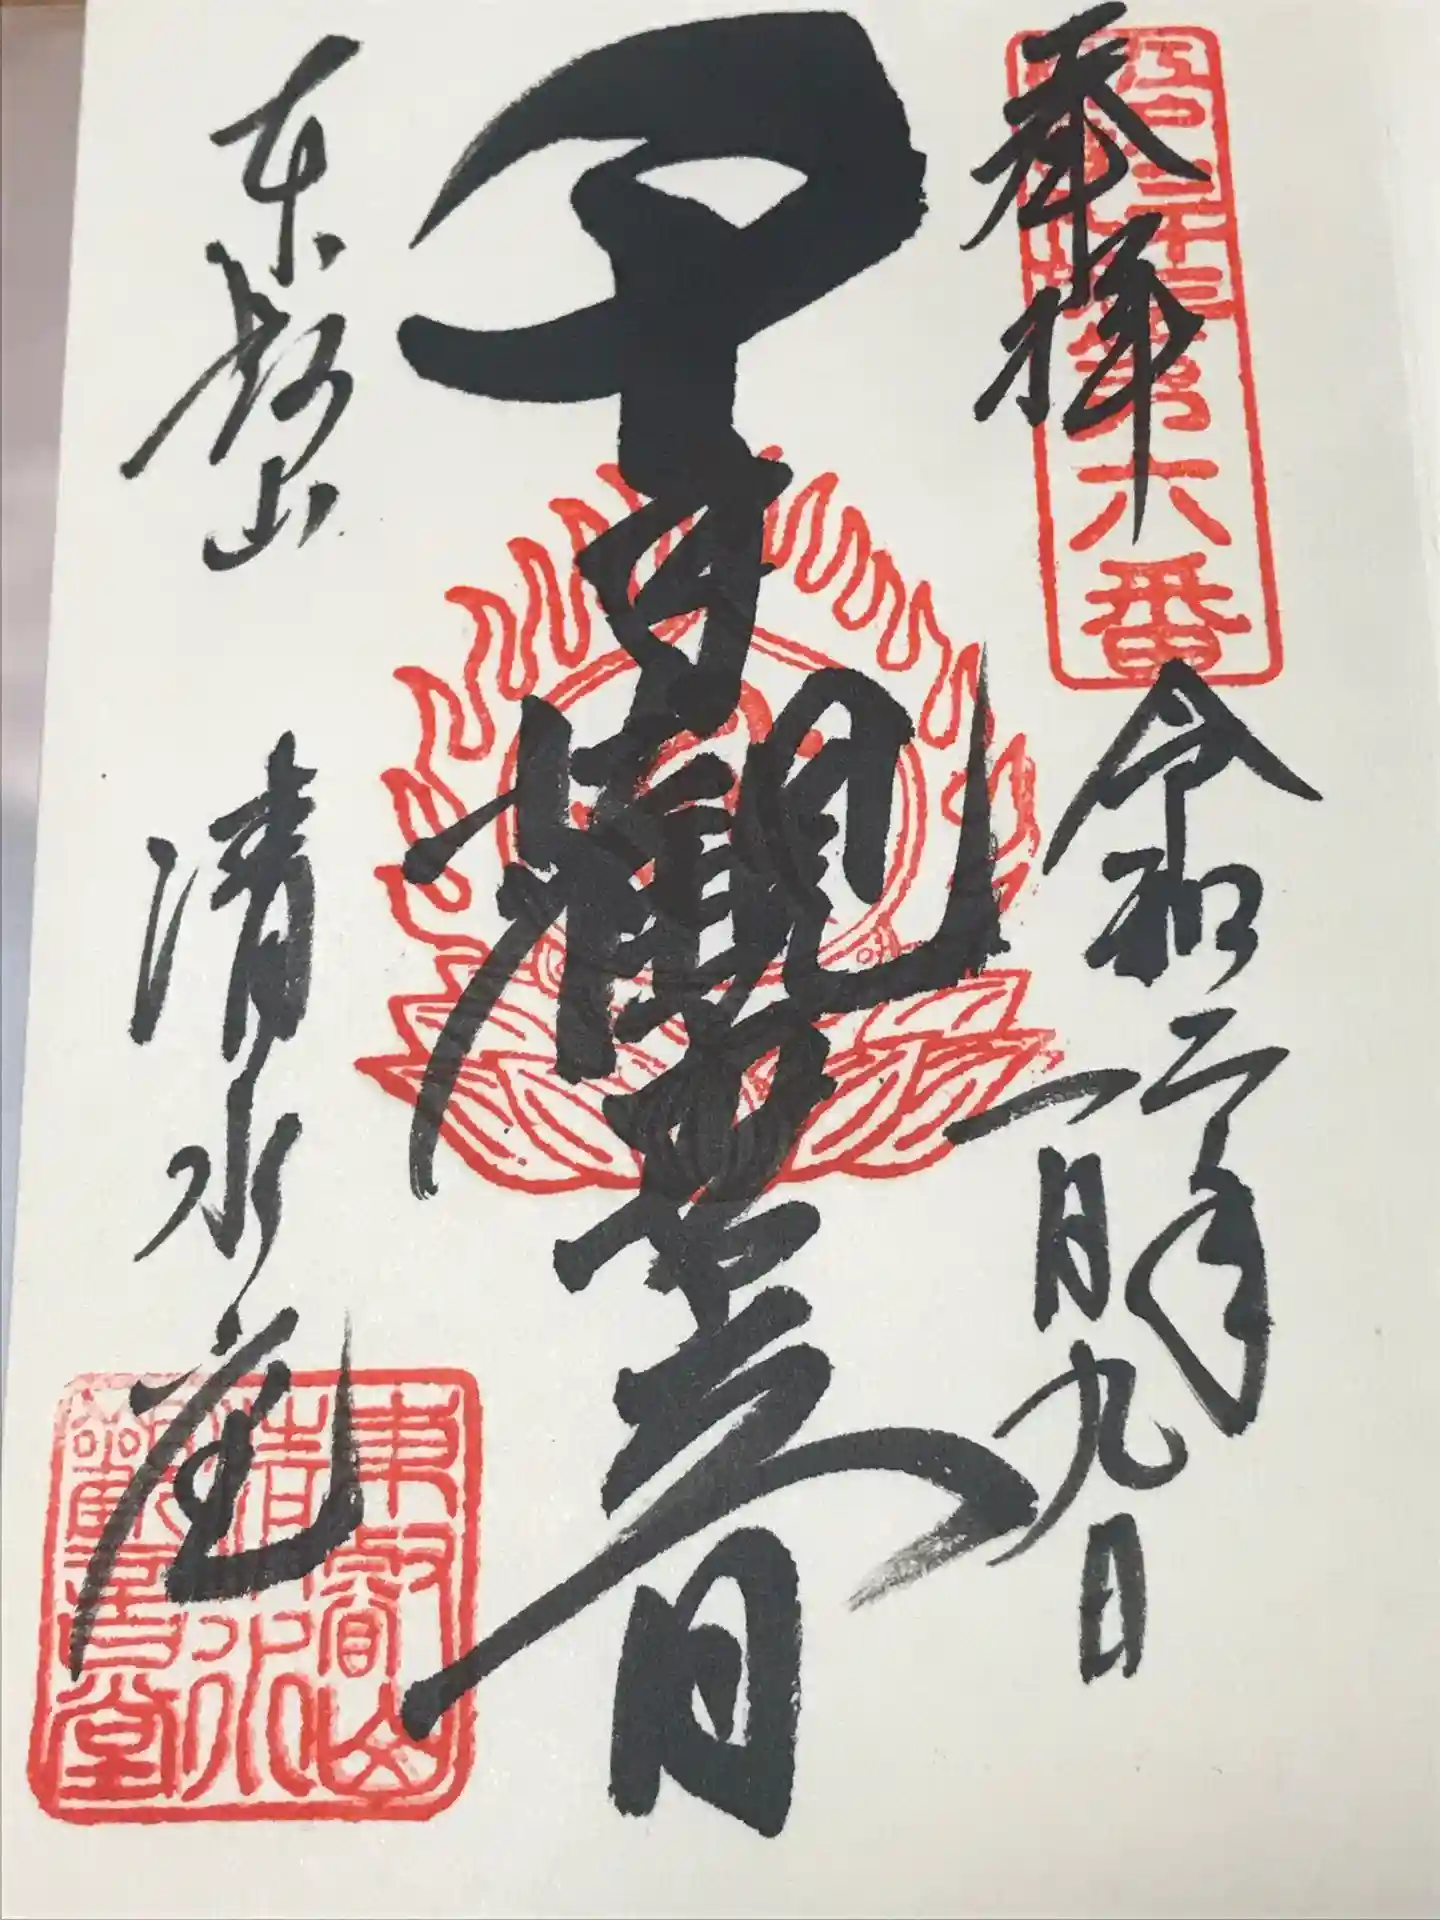 奉拝
江戸三十三
第六番
令和二年
一月九日
千手觀世音
東叡山 清水堂
東叡山
清水
觀音堂